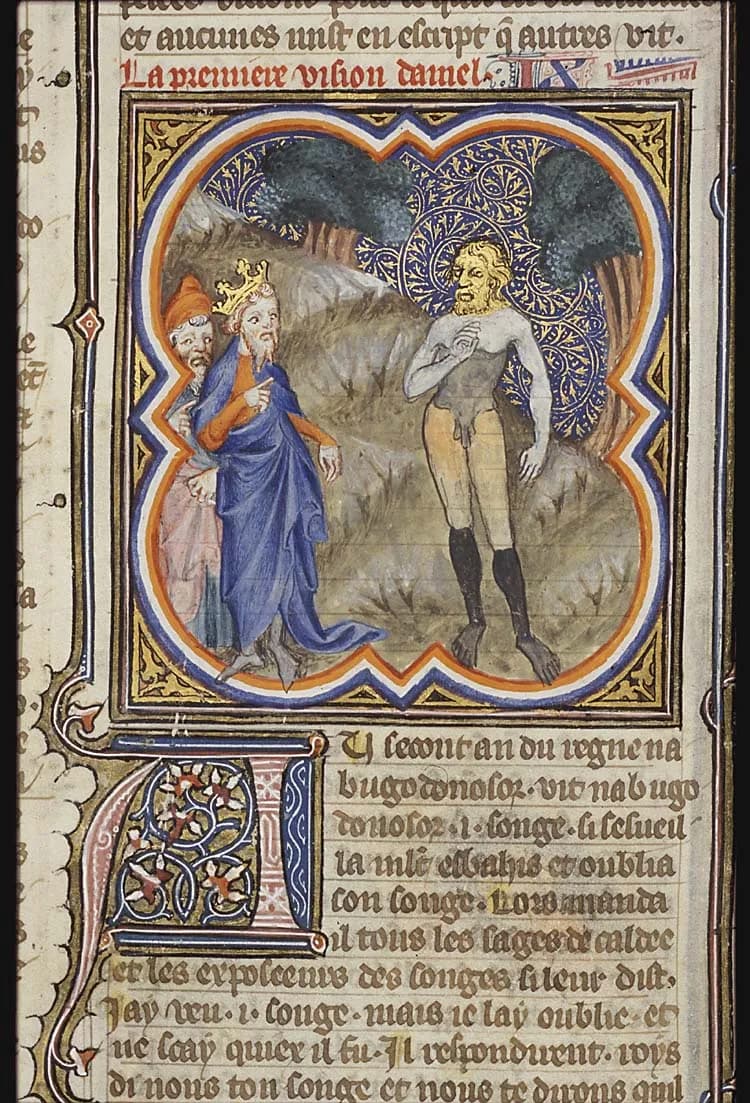 et aucunes mist en escript q̃ autres vit.
La premiere vision daniel. IX
AU secont an du regne na
bugodonosor. vit nabugo
donosor .i. songe. si sesueil
la mlt̃ esbahis et oublia
son songe. Lors manda
il tous les sages de caldee
et les exposeeurs des songes si leur dist.
Jay veu .i. songe. mais ie lay oublie. et
ne scay quiex il fu. Il respondirent. roys
di nous ton songe et nous te dirons quil